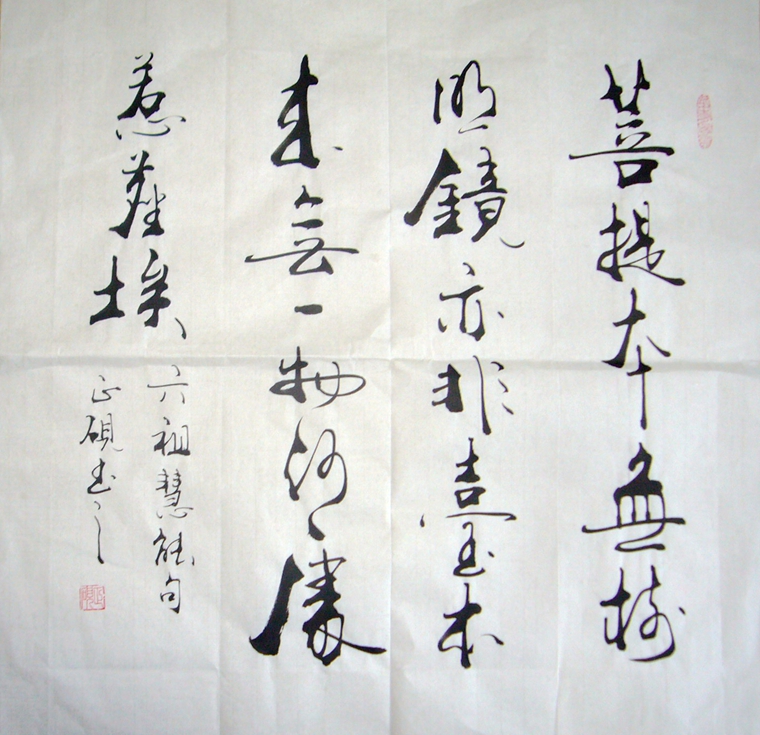 菩提本無樹
明鏡亦非臺本
來無一物何處
惹塵埃
六祖慧能句
正硯書之